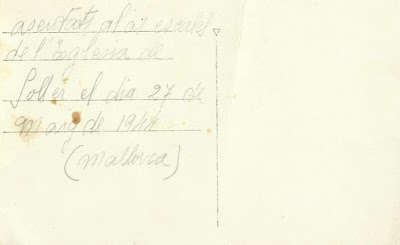 aseutats al as escales
de l'Esglesia de
Soller el dia 27 de
maig de 1944
(Mallorca)